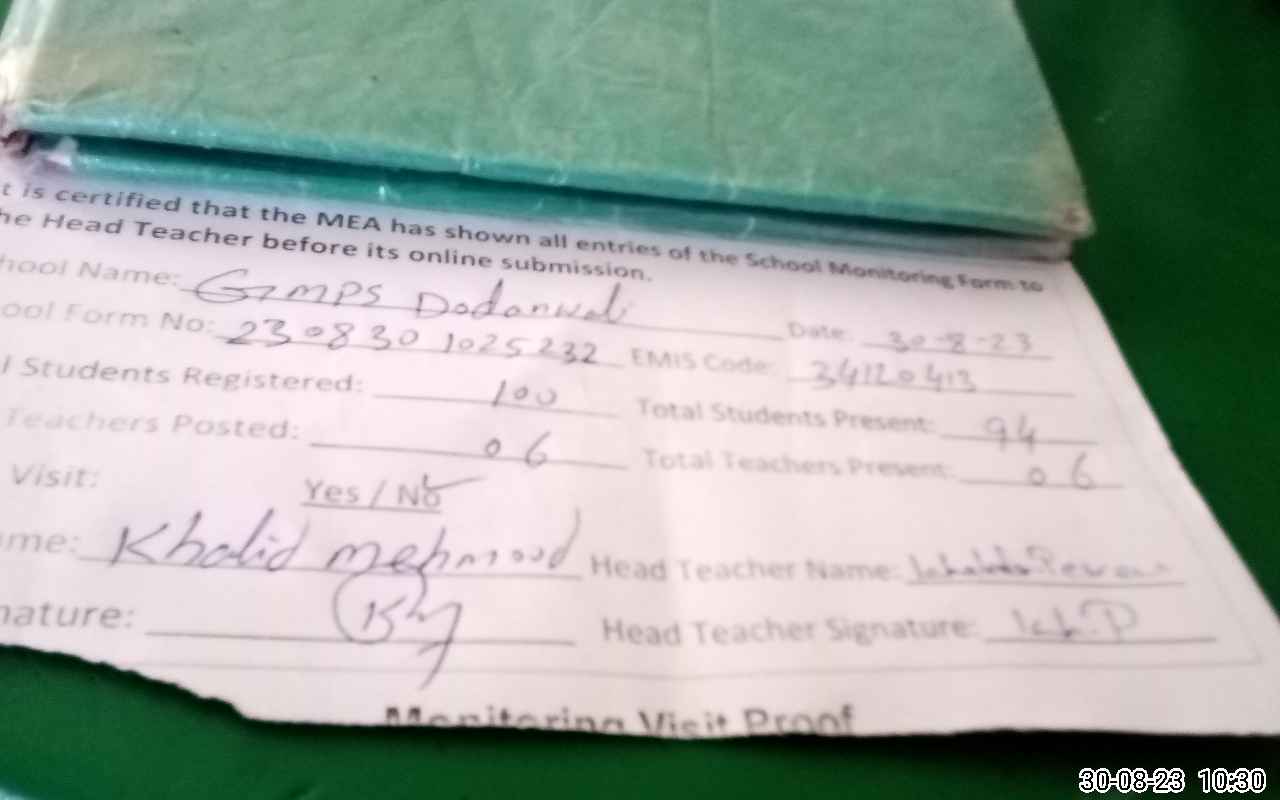 t is certified that the MEA has shown all entries of the School Monitoring Form to
he Head Teacher before its online submission.
hool Name: GMPS Dodanwali Date: 30-8-23
ool Form No: 230830 1025232 EMIS Code: 34120413
l Students Registered: 100 Total Students Present: 94
Teachers Posted: 06 Total Teachers Present: 06
Visit: Yes / No
me: Khalid mehmood Head Teacher Name:
nature: Head Teacher Signature:
Monitoring Visit Proof
30-08-23 10:30